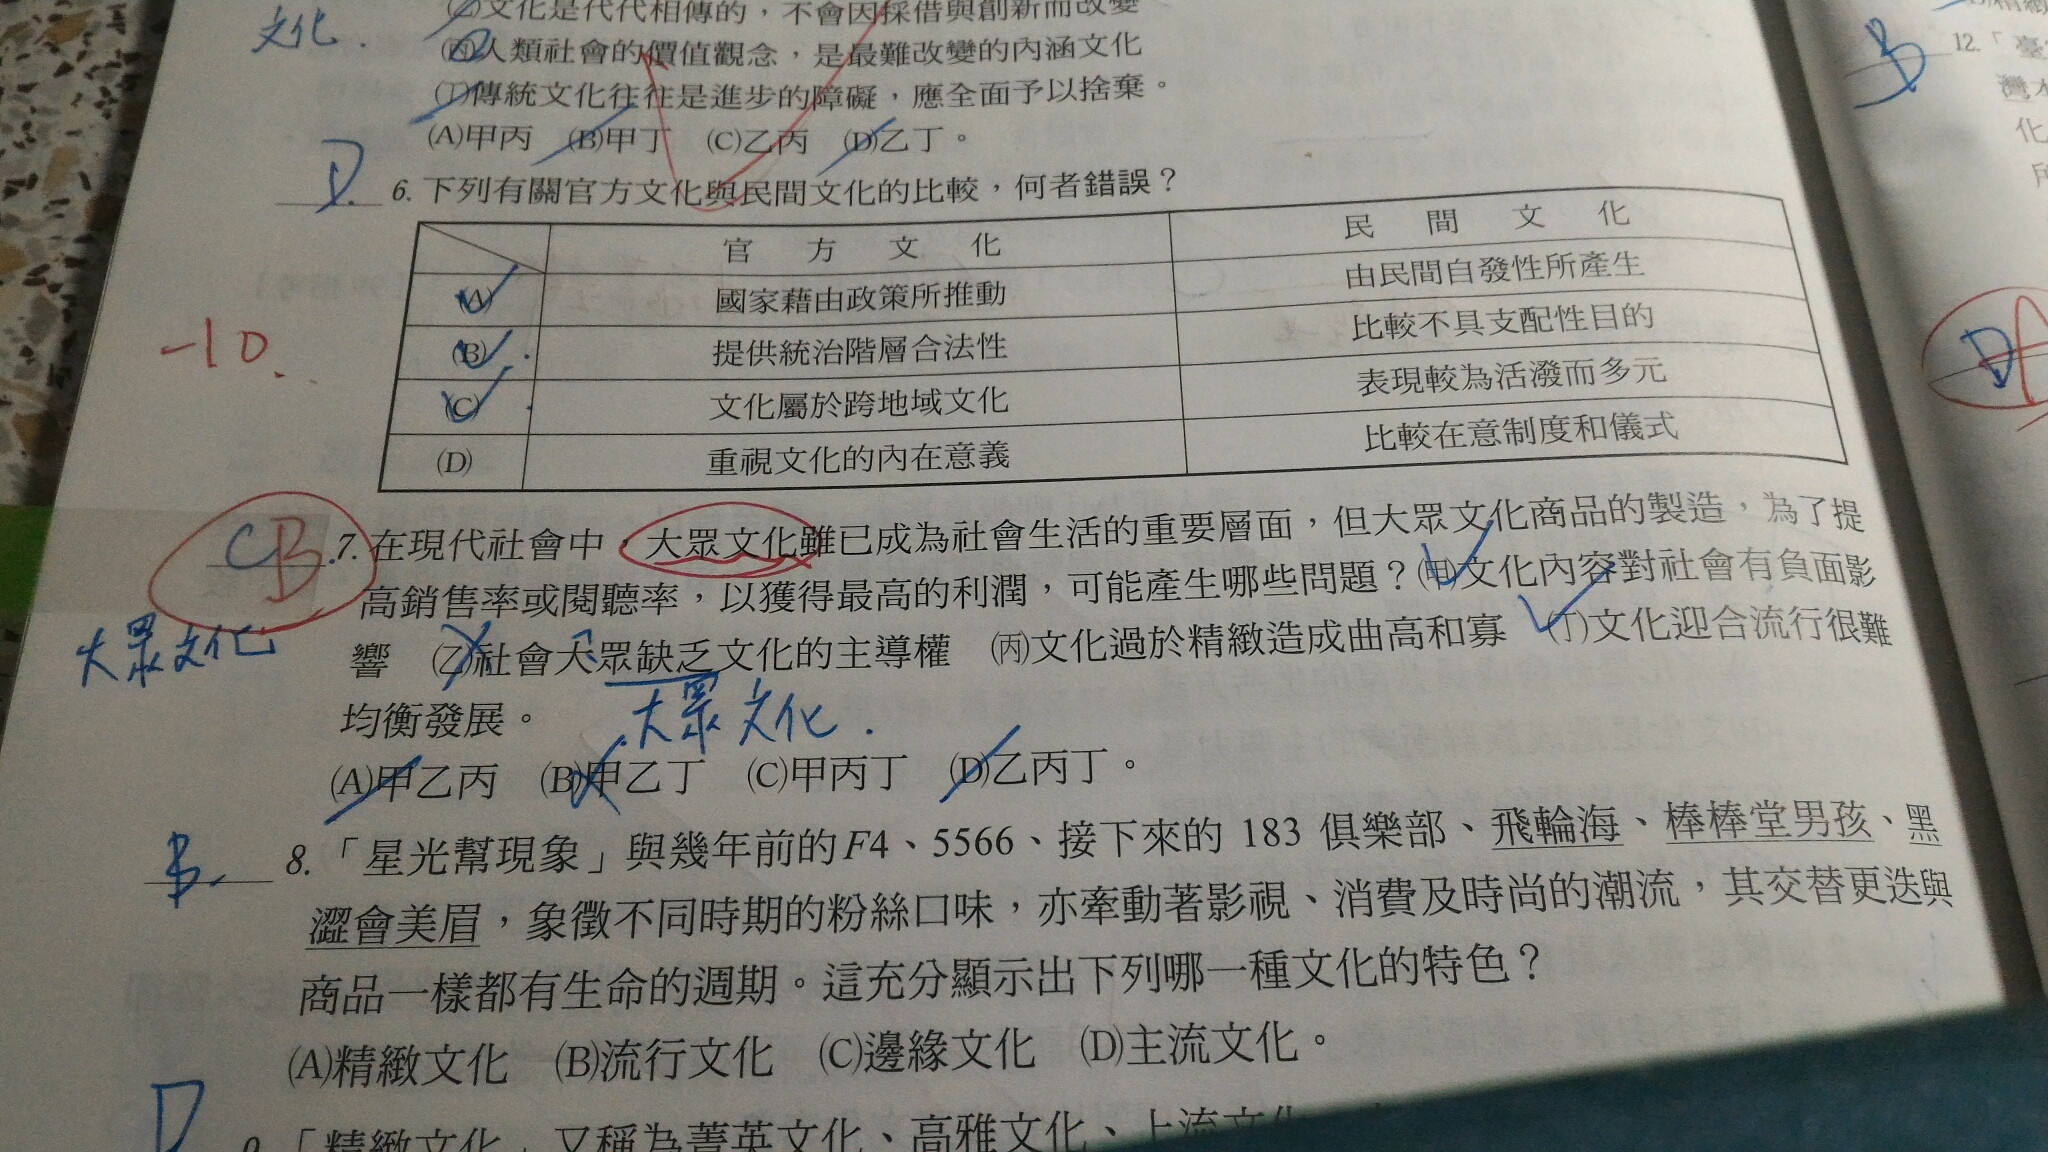 (乙)文化是代代相傳的，不會因採借與創新而改變
文化.
(丙)人類社會的價值觀念，是最難改變的內涵文化
(丁)傳統文化往往是進步的障礙，應全面予以捨棄。
(A)甲丙 (B)甲丁 (C)乙丙 (D)乙丁。
D. 6. 下列有關官方文化與民間文化的比較，何者錯誤？
官方文化 民間文化
(A) 國家藉由政策所推動 由民間自發性所產生
(B) 提供統治階層合法性 比較不具支配性目的
(C) 文化屬於跨地域文化 表現較為活潑而多元
(D) 重視文化的內在意義 比較在意制度和儀式
-10
C B 7. 在現代社會中，大眾文化雖已成為社會生活的重要層面，但大眾文化商品的製造，為了提
高銷售率或閱聽率，以獲得最高的利潤，可能產生哪些問題？(甲)文化內容對社會有負面影
響 (乙)社會大眾缺乏文化的主導權 (丙)文化過於精緻造成曲高和寡 (丁)文化迎合流行很難
大眾文化
均衡發展。
大眾文化.
(A)甲乙丙 (B)甲乙丁 (C)甲丙丁 (D)乙丙丁。
B. 8. 「星光幫現象」與幾年前的F4、5566、接下來的 183 俱樂部、飛輪海、棒棒堂男孩、黑
澀會美眉，象徵不同時期的粉絲口味，亦牽動著影視、消費及時尚的潮流，其交替更迭與
商品一樣都有生命的週期。這充分顯示出下列哪一種文化的特色？
(A)精緻文化 (B)流行文化 (C)邊緣文化 (D)主流文化。
D 9. 「精緻文化」又稱為菁英文化、高雅文化、上流文化
B 12. 「臺
灣
化
D A